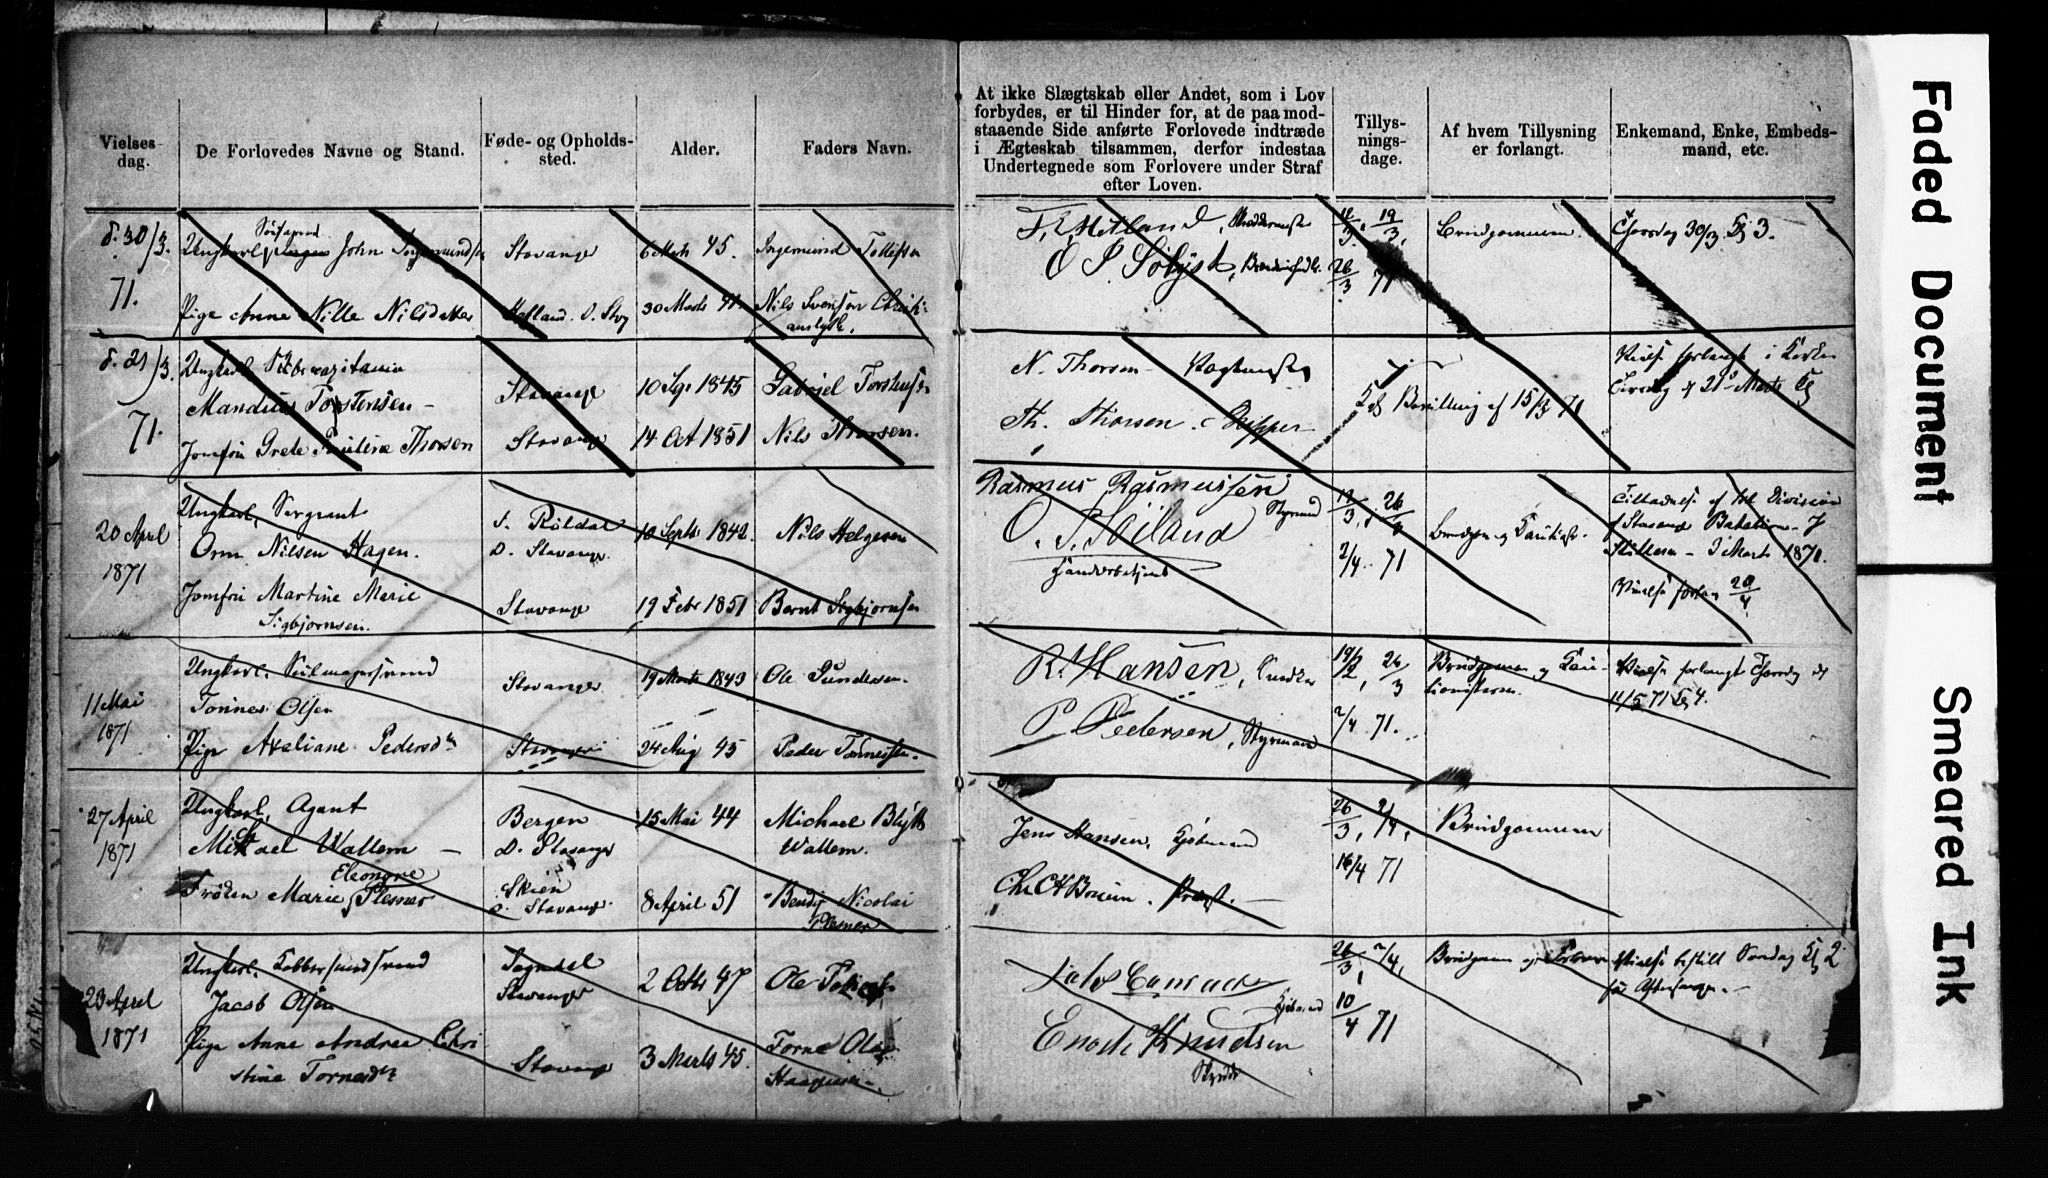 Vielses-
dag.
De Forlovedes Navne og Stand.
Føde- og Opholds-
sted.
Alder.
Faders Navn.
At ikke Slægtskab eller Andet, som i Lov
forbydes, er til Hinder for, at de paa mod-
staaende Side anførte Forlovede indtræde
i Ægteskab tilsammen, derfor indestaa
Undertegnede som Forlovere under Straf
efter Loven.
Tillys-
nings-
dage.
Af hvem Tillysning
er forlangt.
Enkemand, Enke, Embeds-
mand, etc.
d. 30/3. 71.
Ungkarl John Torgersmundsen
Stavanger
6 Marts 45.
Torgermund Tollefsen
Pige Anne Nille Nilsdatter
Hetland. O. Stvg
30 Marts 41.
Nils Svensen
T. Hetland,
O P Sólyst,
12/3. 19/3,
26/3 71
Brudgommen.
Thorsdag 30/3 Kl 3.
d. 21/3. 71.
Ungkarl
Mandius Torstensen
Stavanger
10 Spt 1845
Gabriel Torstensen
Jomfru Grete Thorsen
Stavanger
14 Oct 1851
Nils Thorsen.
N. Thorsen
Th. Thorsen. Skipper
Kgl Bevilling af 15/3 71
Vielse forlangt i Kirken
Tirsdag d 21 Marts Kl
20 April
1871
Ungkarl, Sergeant
Orm Nilsen Hagen.
f. Röldal
O. Stavanger.
10 Septb 1842.
Nils Helgesen
Jomfru Martine Marie
Sigbjørnsen.
Stavanger
19 Febr 1851
Bernt Sigbjørnsen
Rasmus Rasmussen
Styrmand
O. S. Høiland
12/3, 26/3
2/4. 71
Brudgom og
Stavanger Bataillon
Marts 1871.
Vielse forlangt 20/4
11 Mai
1871
Ungkarl. Seilmagersvend
Tönnes Olsen
Stavanger
19 Marts 1843
Ole Gundersen.
Pige Axeliane Pedersdtr
Stavanger
24 Aug 45
Peder Tönnessen.
R. Hansen,
P. Pedersen, Styrmand
26/3
2/4 71.
Brudgommen og Kau-
tionisterne.
Vielse forlangt Thorsdag d
11/5 71 Kl 4.
27 April
1871
Ungkarl, Agent
Michael Wallem
Bergen
O. Stavanger
15 Mai 44
Michael Blydt
Wallem.
Eleonore
Frøken Marie Plesner
Skien
O. Stavanger
8 April 51
Bendix Nicolai
Plesner
Jens Hansen, Kjøbmand
Chr. C. A. Bruun. Præst.
26/3, 2/4,
16/4 71
Brudgommen
23 April
1871
Ungkarl. Kobbersmedsvend
Jacob Olsen
Sogndal
Stavanger
2 Octb 47
Ole
Pige Anne Andrea Chri
stine Tornesdtr
Stavanger
3 Marts 45.
Torne Olsen
Enoch Knudsen
26/3, 2/4,
10/4 71
Brudgom og Forlover
Vielse bestilt Søndag Kl 2
før Aftensangen.
Faded Document
Smeared Ink